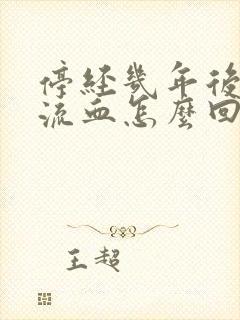 停经几年後
流血怎麼回
王超